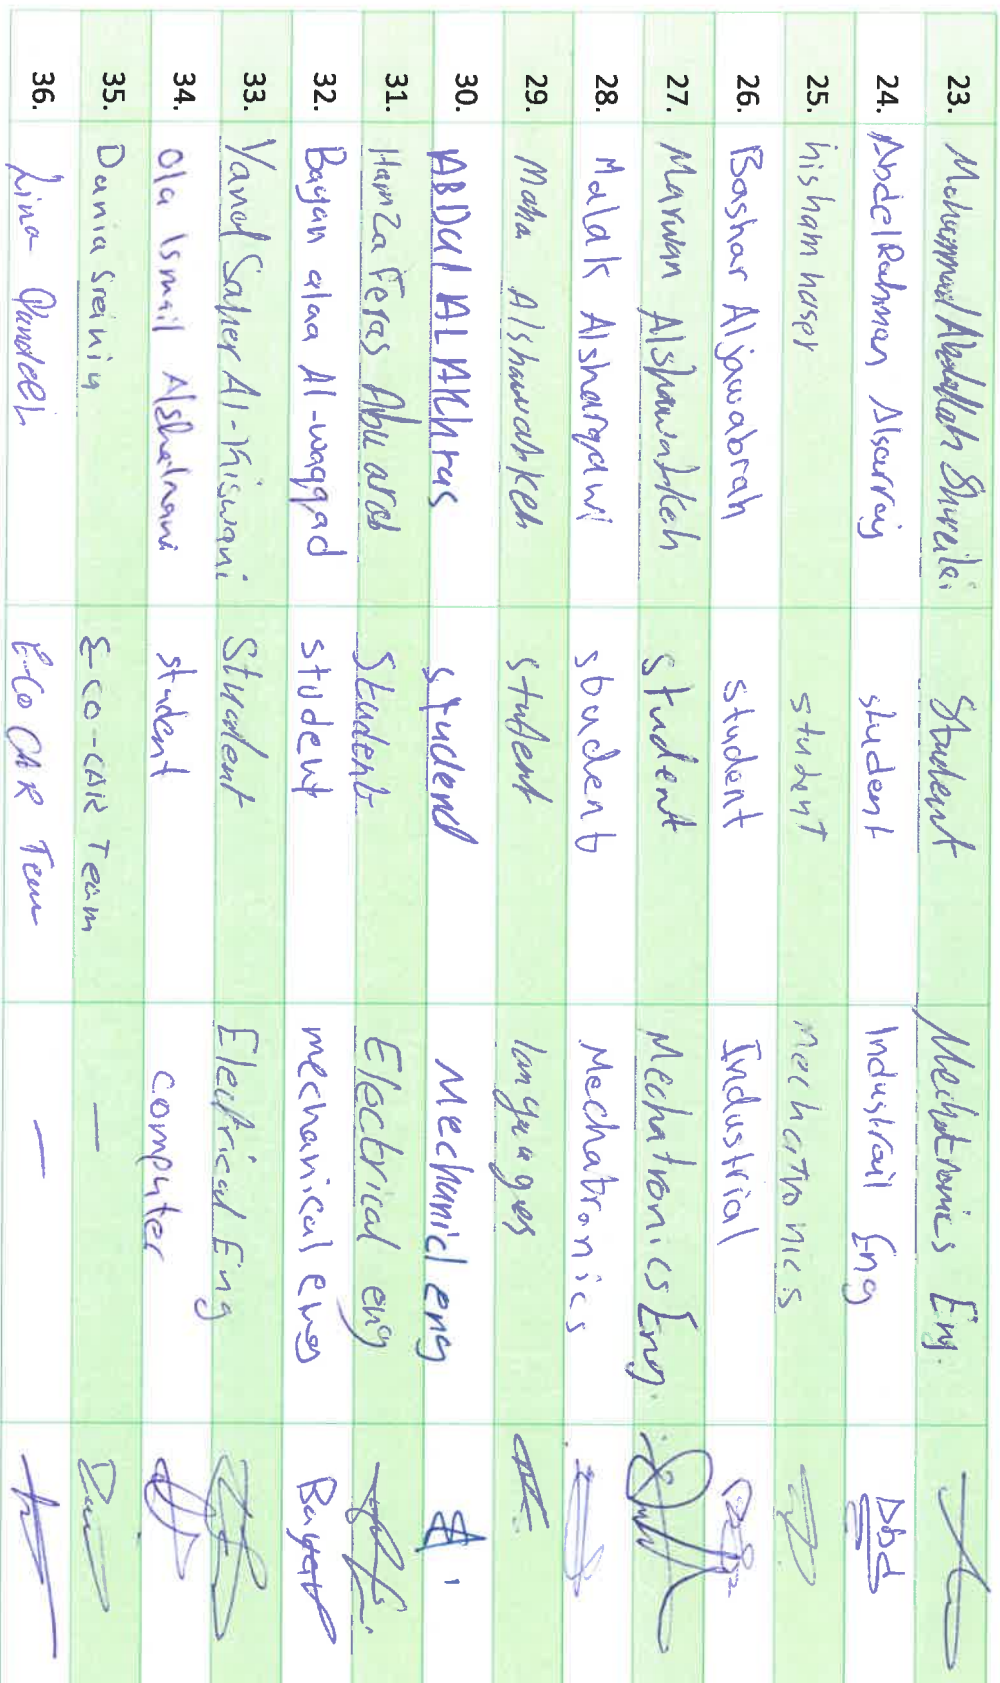 23. Mohammad Abdallah Shreikei Student Mechatronics Eng.
24. AbdelRahman Alsarraj student Industrail Eng Abd
25. hisham student Mechatronics
26. Bashar Aljawabrah student Industrial
27. Marwan Alshawabkeh student Mechatronics Eng.
28. Malak Alsharqawi student Mechatronics
29. Maha Alshawabkeh student languages
30. ABDUl ALAKhras student Mechanicl eng
31. Hamza Feras Abu arab Student Electrical eng
32. Bayan alaa Al-waqqad student mechanical eng Bayan
33. Yanal Saher Al-Kiswani Student Electrical Eng
34. Ola Ismail Alshalnani student computer
35. Dania Sreihin E-co-CAR Team —
36. Lina E-Co CAR Team —